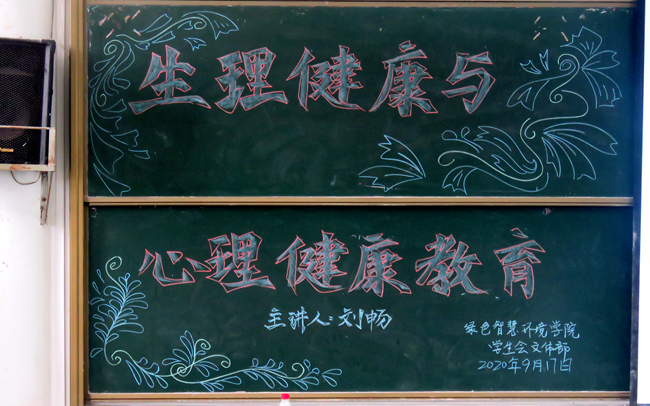 生理健康与
心理健康教育
主讲人:刘畅
绿色智慧环境学院
学生会文体部
2020年9月17日